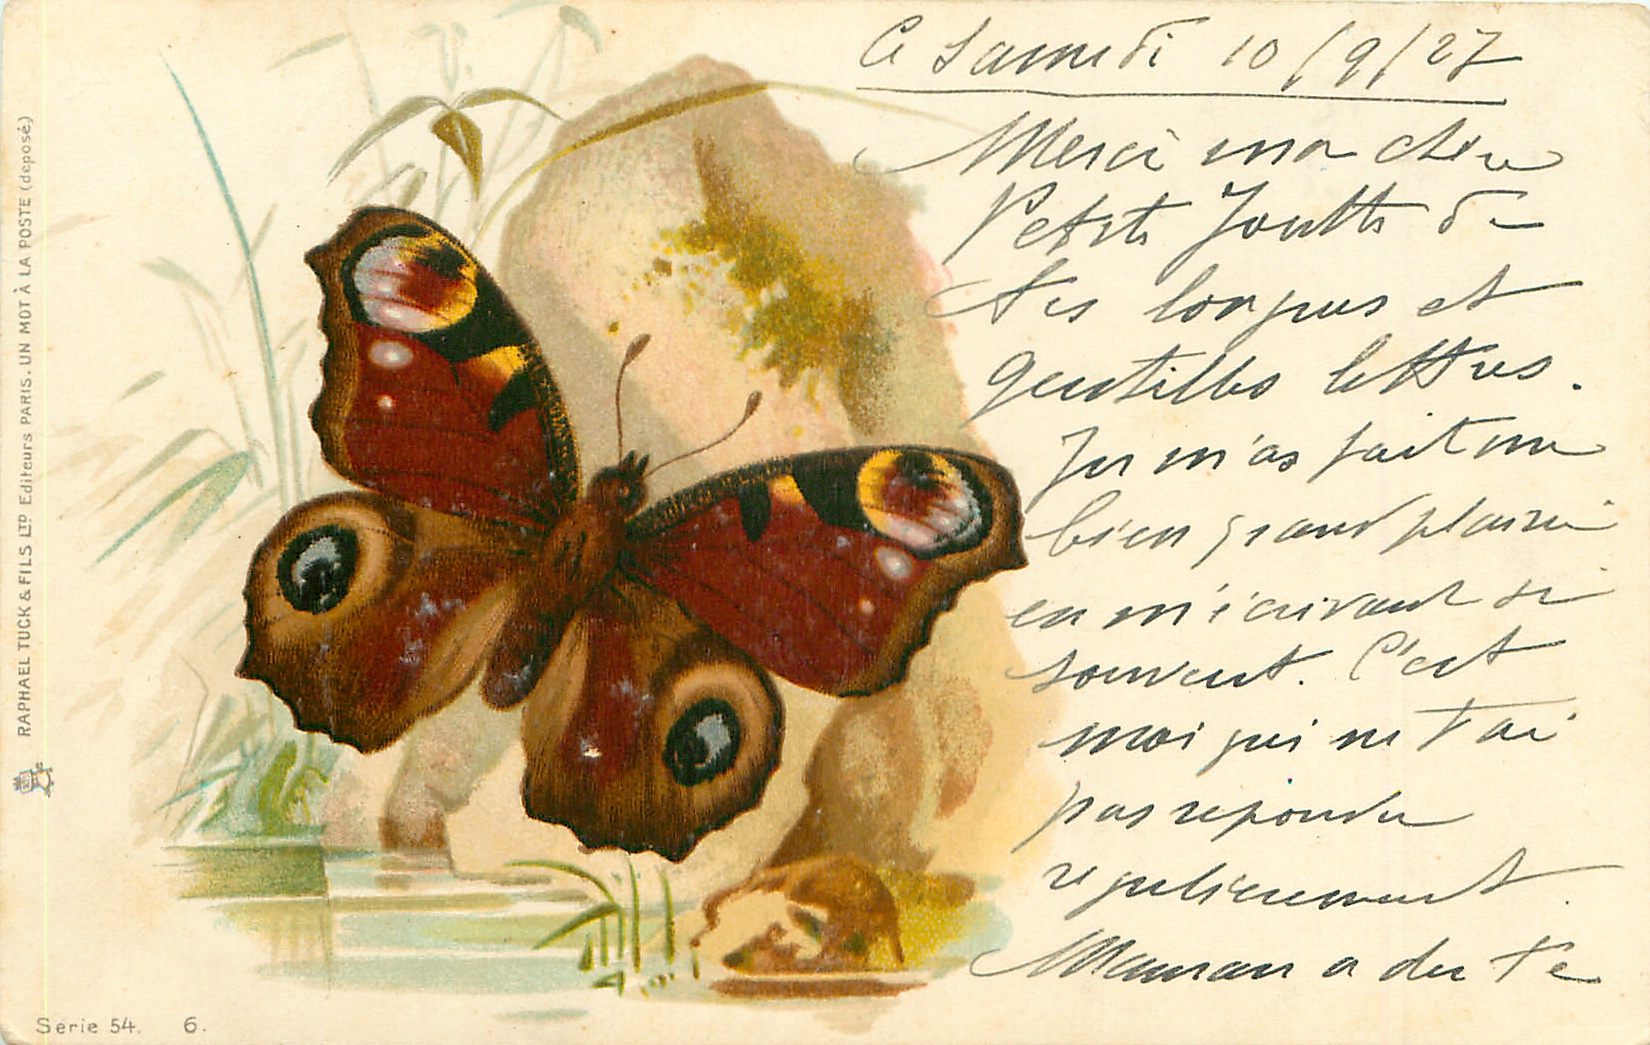 Ce Samedi 10/9/27
Merci ma chère
Petite de
tes longues et
gentilles lettres.
Tu m'as fait un
bien grand plaisir
en m'écrivant si
souvent. C'est
moi qui ne t'ai
pas repondu
regulierement.
Maman a du te
RAPHAEL TUCK & FILS LTD Editeurs PARIS. UN MOT À LA POSTE (deposé)
Série 54. 6.